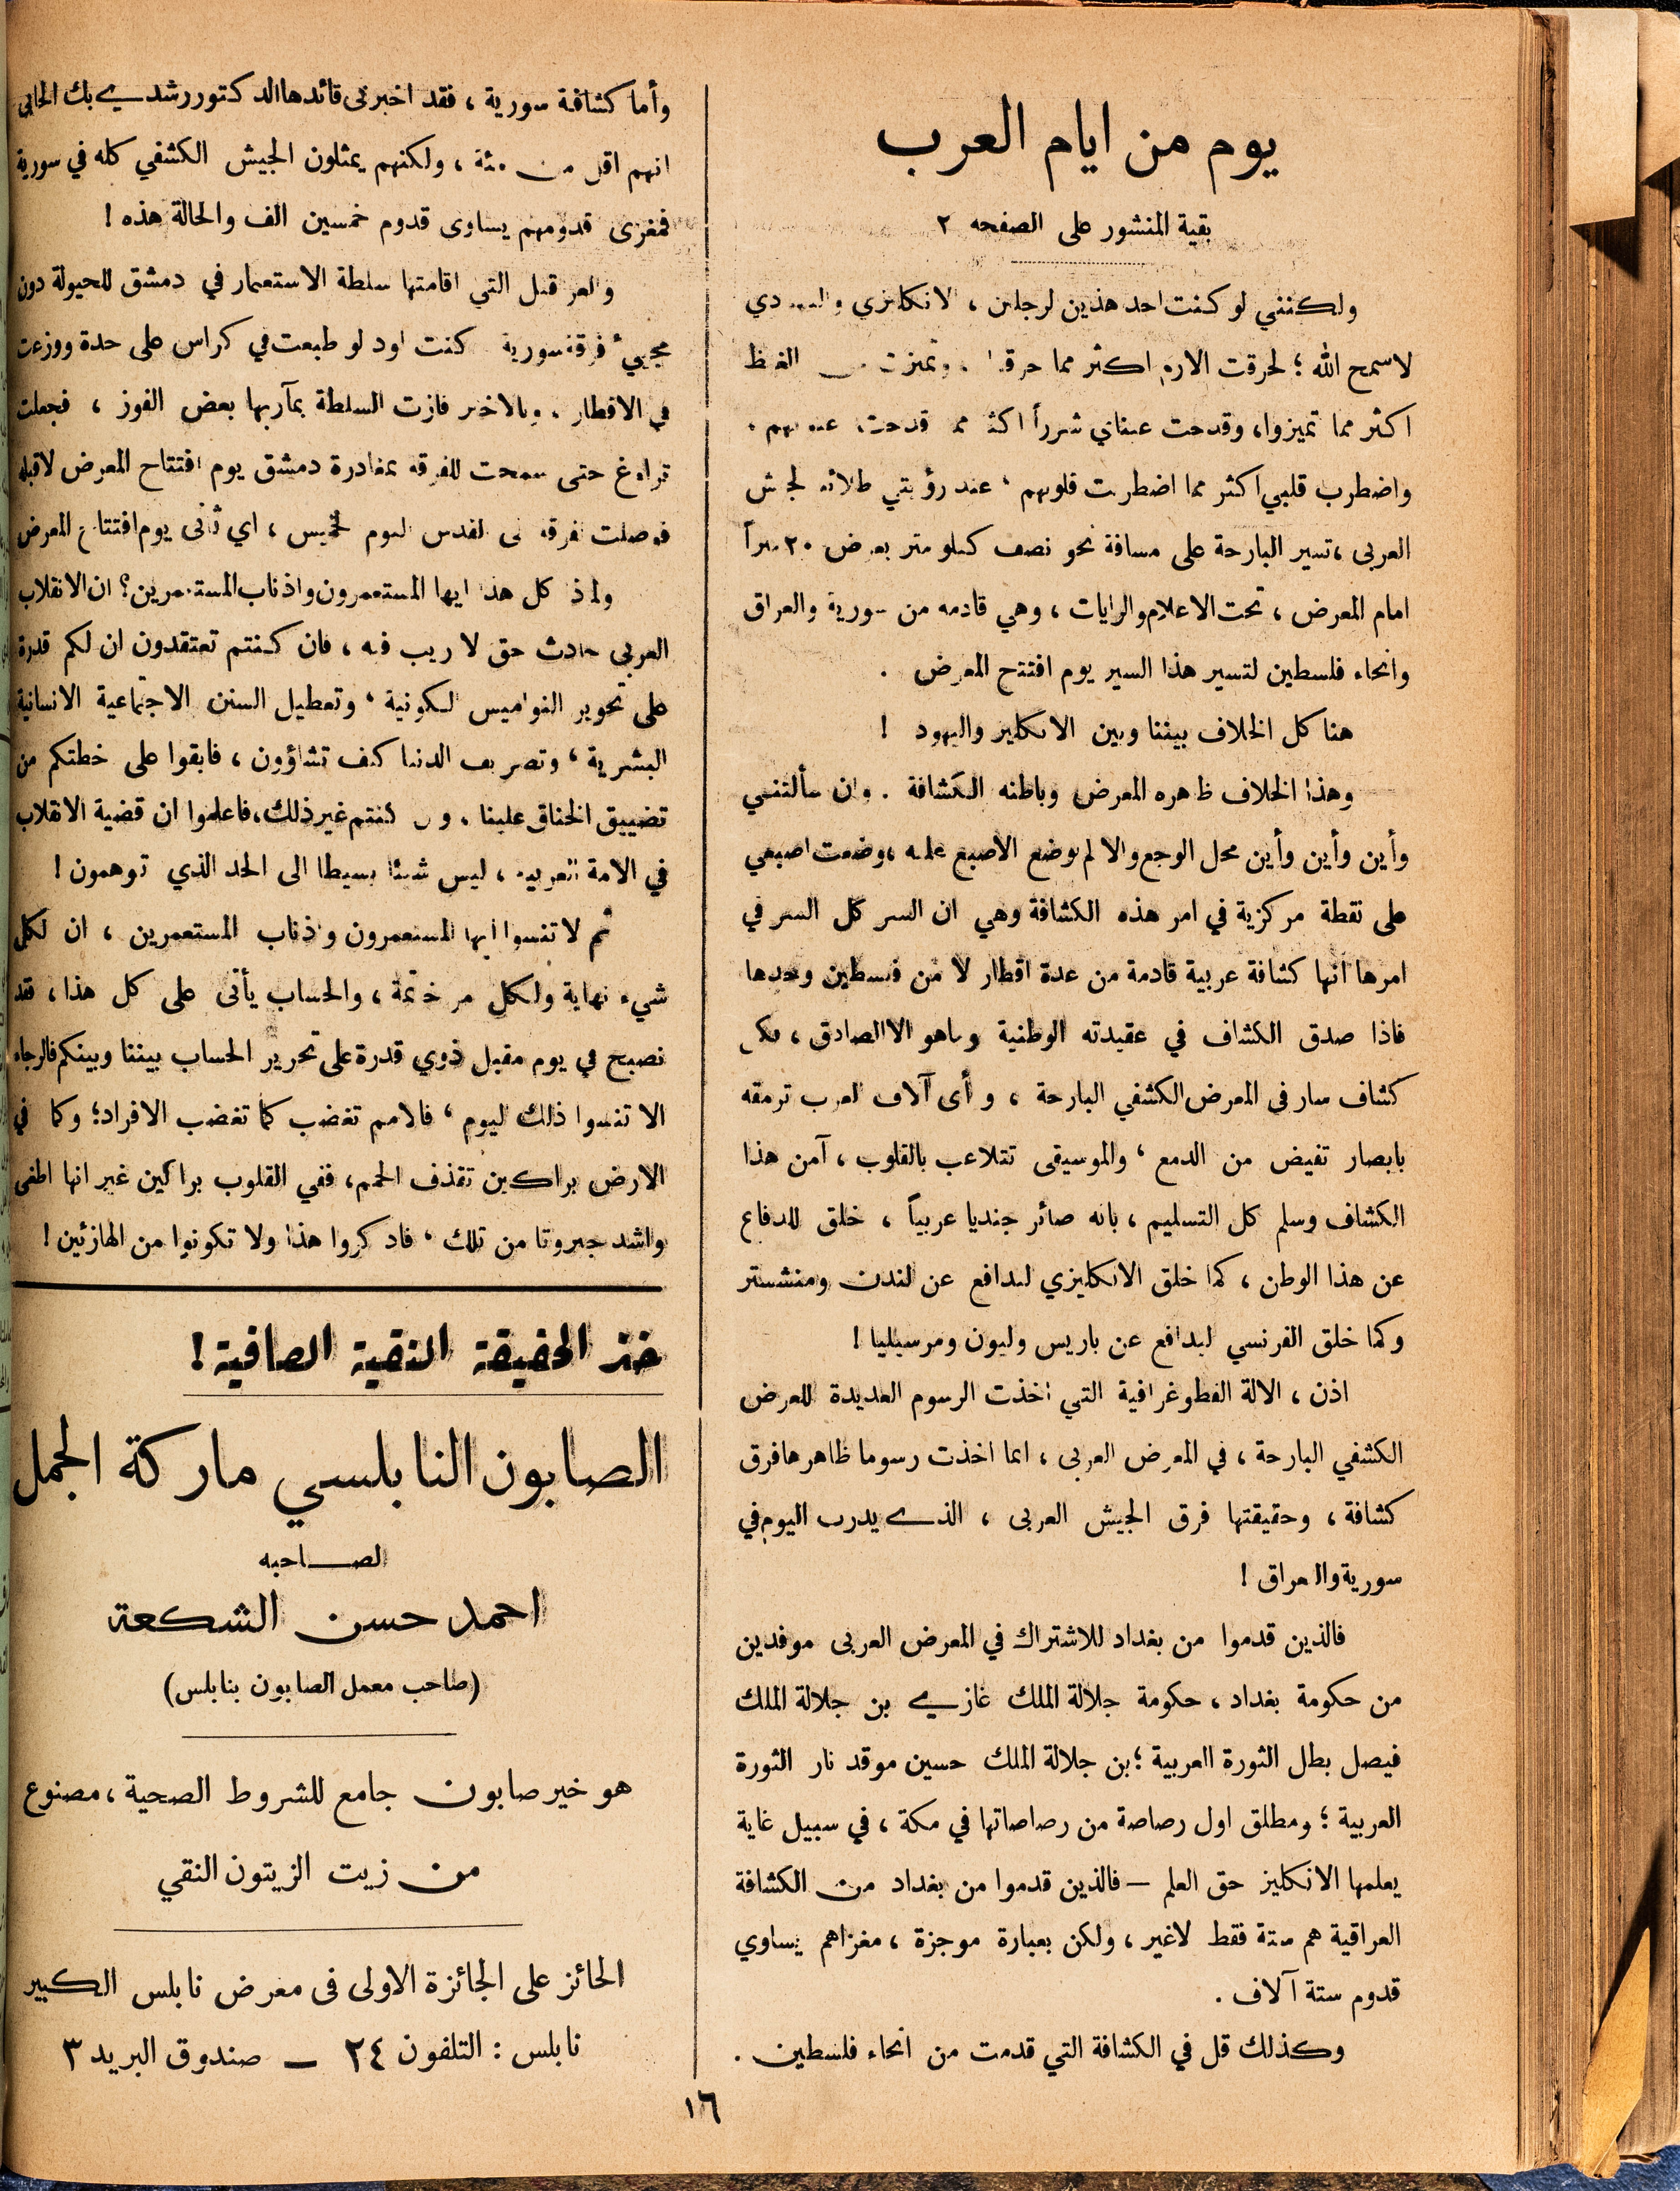 يوم من ايام العرب
بقية المنشور على الصفحه ٢
ولكنني لو كنت احد هذين لرجلين ، الانكليزي و
لاسمح الله ؛ لحرقت الارم اكثر مما وتميزت
اكثر مما تميزوا، وقدحت عيناي شرراً اكثر مما قدحت
واضطرب قلبي اكثر مما اضطربت قلوبهم ، عند رؤيتي طلائع لجيش
العربى ، تسير البارحة على مسافة نحو نصف كيلو متر بعرض ٢٠ متراً
امام المعرض ، تحت الاعلام والرايات ، وهي قادمه من سورية والعراق
وانحاء فلسطين لتسير هذا السير يوم افتتح المعرض .
هنا كل الخلاف بيننا وبين الانكليز واليهود !
وهذا الخلاف ظاهره المعرض وباطنه الكشافة . وان سألتنسي
وأين وأين وأين محل الوجع والالم لوضع الاصبع عليه ، وضعت اصبعي
على نقطة مركزية في امر هذه الكشافة وهي ان السر كل السر في
امرها انها كشافة عربية قادمة من عدة اقطار لا من فلسطين وحدها
فاذا صدق الكشاف في عقيدته الوطنية وماهو الا الصادق ،
كشاف سار في المعرض الكشفي البارحة ، و أى آلاف لعرب ترمقه
بابصار تفيض من الدمع ، والموسيقى تتلاعب بالقلوب ، آمن هذا
الكشاف وسلم كل التسليم ، بانه صائر جنديا عربياً ، خلق للدفاع
عن هذا الوطن ، كما خلق الانكليزي ليدافع عن لندن ومنشستر
وكما خلق الفرنسي ليدافع عن باريس وليون ومرسيليا !
اذن ، الالة الفطوغرافية التي اخذت الرسوم العديدة للعرض
الكشفي البارحة ، في المعرض العربى ، انما اخذت رسوما ظاهرها فرق
كشافة ، وحقيقتها فرق الجيش العربى ، الذي يدرب اليوم في
سورية والعراق !
فالذين قدموا من بغداد للاشتراك في المعرض العربى موفدين
من حكومة بغداد ، حكومة جلالة الملك غازي بن جلالة الملك
فيصل بطل الثورة العربية ؛ بن جلالة الملك حسين موقد نار الثورة
العربية ؛ ومطلق اول رصاصة من رصاصاتها في مكة ، في سبيل غاية
يعلمها الانكليز حق العلم — فالذين قدموا من بغداد من الكشافة
العراقية هم ستة فقط لاغير ، ولكن بعبارة موجزة ، مغزاهم يساوي
قدوم ستة آلاف .
وكذلك قل في الكشافة التي قدمت من انحاء فلسطين .
وأما كشافة سورية ، فقد اخبرنى قائدها الدكتور رشدي بك الجابى
انهم اقل من مئة ، ولكنهم يمثلون الجيش الكشفي كله في سورية
فمغزى قدومهم يساوى قدوم خمسين الف والحالة هذه !
والعر قيل التي اقامتها سلطة الاستعمار في دمشق للحيولة دون
مجييء فرقة سورية كنت اود لو طبعت في كراس على حدة ووزعت
في الاقطار . وبالاخير فازت السلطة بمآربها بعض الفوز ، فجعلت
تراوغ حتى سمحت للفرقه بمغادرة دمشق يوم افتتاح المعرض لاقبله
فوصلت لفرقه لى لقدس ليوم لخميس ، اي ثانى يوم افتتاح المعرض
ولماذ كل هذا ايها المستعمرون واذناب المستعمرين ؟ ان الانقلاب
العربي حادث حق لا ريب فيه ، فان كنتم تعتقدون ان لكم قدرة
على تحوير النواميس لكونية ، وتعطيل السنن الاجتماعية الانسانية
البشرية ، وتصريف الدنيا كيف تشاؤون ، فابقوا على خطتكم من
تضييق الخناق علينا . و كنتم غير ذلك، فاعلموا ان قضية الانقلاب
في الامة العربيه ، ليس شيئا بسيطا الى الحد الذي توهمون !
ثم لا تنسوا ايها المستعمرون واذناب المستعمرين ، ان لكل
شيء نهاية ولكل مر خاتمة ، والحساب يأتى على كل هذا ، قد
نصبح في يوم مقبل ذوي قدرة على تحرير الحساب بيننا وبينكم فالرجاء
الا تنسوا ذلك ليوم ، فالامم تغضب كما تغضب الافراد؛ وكما في
الارض براكين تقذف الحمم، ففي القلوب براكين غير انها اطفى
واشد جبروتا من تلك ، فادكروا هذا ولا تكونوا من الهازئين !
خذ الحقيقة النقية الصافية !
الصابون النابلسي ماركة الجمل
لصاحبه
احمد حسن الشكعة
(صاحب معمل الصابون بنابلس)
هو خير صابون جامع للشروط الصحية ، مصنوع
من زيت الزيتون النقي
الحائز على الجائزة الاولى فى معرض نابلس الكبير
نابلس : التلفون ٢٤ — صندوق البريد ٣
١٦